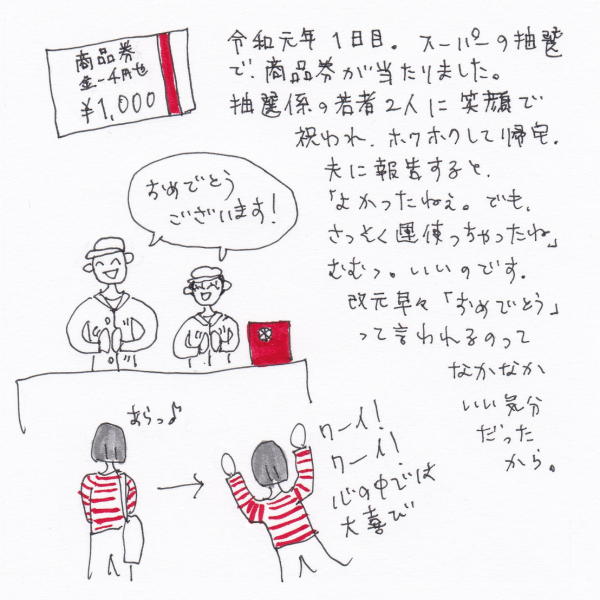 商品券
金一千円也
¥1,000
令和元年1日目。スーパーの抽選
で、商品券が当たりました。
抽選係の若者2人に笑顔で
祝われ、ホクホクして帰宅。
夫に報告すると、
「よかったねぇ。でも、
さっそく運使っちゃったね」
むむっ。いいのです。
改元早々「おめでとう」
って言われるのって
なかなか
いい気分
だった
から。
おめでとう
ございます!
あらっ♪
ワーイ!
ワーイ!
心の中では
大喜び